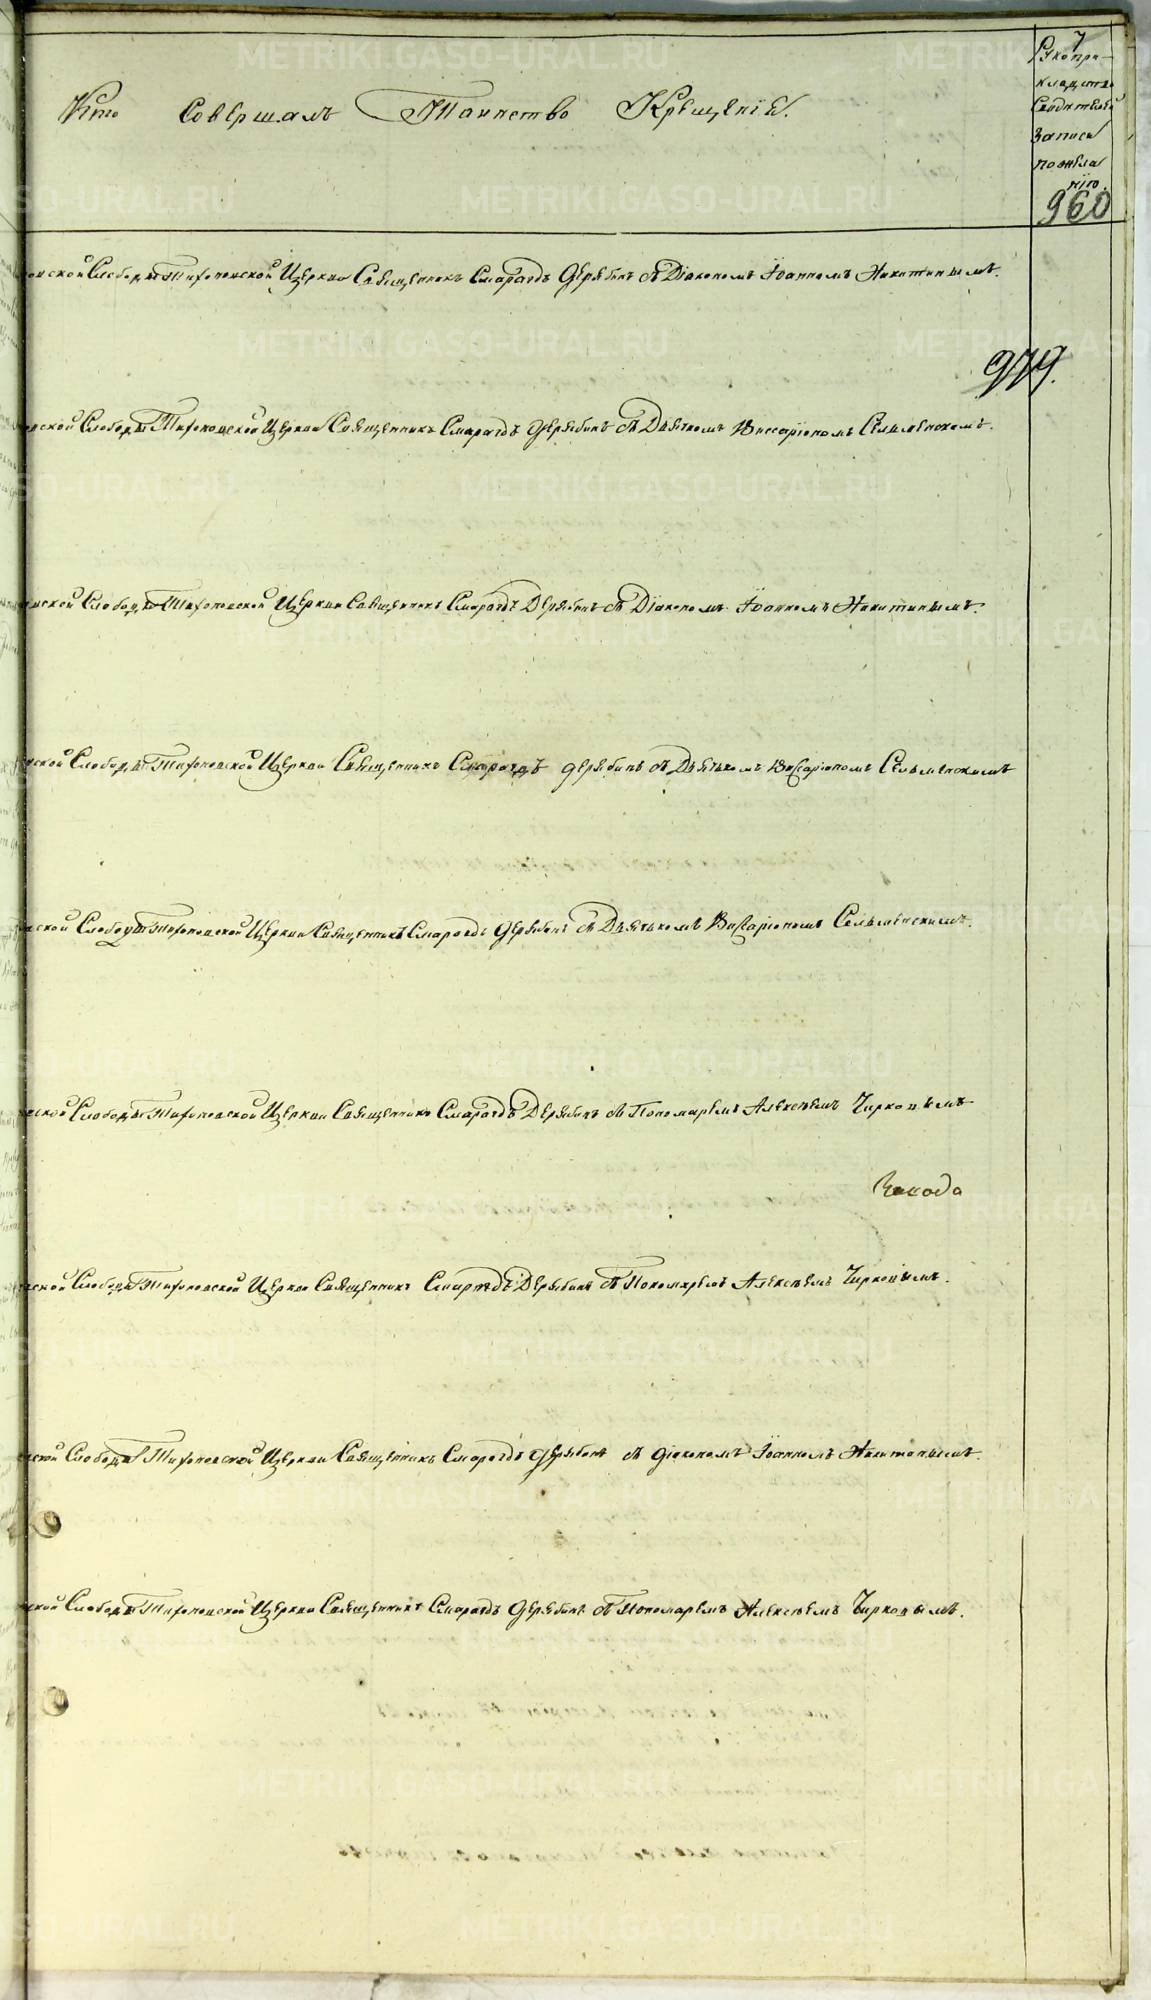 7
Кто Совершалъ Таинство Крещенія.
Рукопри-
кладство
Свидетелей
Записи
по жела
нію.
960
ской Слободы Тихоновской Церкви Священникъ Смарагдъ Дерябинъ съ Діакономъ Іоанномъ Никитинымъ.
979.
ской Слободы Тихоновской Церкви Священникъ Смарагдъ Дерябинъ съ Дьячкомъ Виссаріономъ Сельменскимъ.
ской Слободы Тихоновской Церкви Священникъ Смарагдъ Дерябинъ съ Діакономъ Іоанномъ Никитинымъ.
ской Слободы Тихоновской Церкви Священникъ Смарагдъ Дерябинъ съ Дьячкомъ Виссаріономъ Сельменскимъ
ской Слободы Тихоновской Церкви Священникъ Смарагдъ Дерябинъ съ Дьячкомъ Виссаріономъ Сельменскимъ.
ской Слободы Тихоновской Церкви Священникъ Смарагдъ Дерябинъ съ Пономаремъ Алексѣемъ Чирковымъ
ской Слободы Тихоновской Церкви Священникъ Смарагдъ Дерябинъ съ Пономаремъ Алексѣемъ Чирковымъ.
ской Слободы Тихоновской Церкви Священникъ Смарагдъ Дерябинъ съ Діакономъ Іоанномъ Никитинымъ.
ской Слободы Тихоновской Церкви Священникъ Смарагдъ Дерябинъ съ Пономаремъ Алексѣемъ Чирковымъ.
METRIKI.GASO-URAL.RU